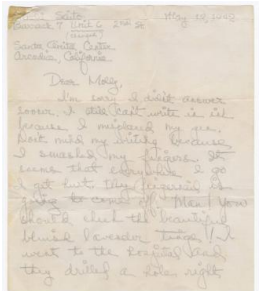 Saito
Barrack 7 Unit 6 2nd St
Santa Anita Center
Arcadia, California
May 1942
Dear Molly,
I'm sorry I didn't answer
sooner. I still can't write in ink
because I misplaced my pen.
my writing because
I smashed my fingers. It
seems that everywhere I go
I get hurt. The fingernail is
going to come off. Man! You
should check the beautiful
lavender tinge! I
went to the hospital and
they drilled a hole right